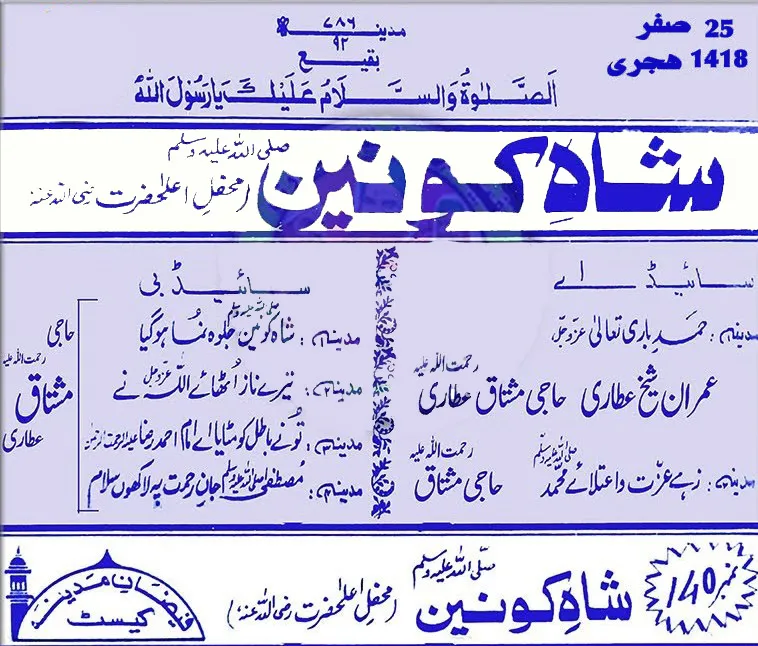 25 صفر
1418 هجری
مدینہ ۷۸۶
۹۲
بقیع
اَلصَّلٰوۃُ وَالسَّلَامُ عَلَیْكَ یَارَسُوْلَ اللّٰہ
شاہِ کونین صلی اللہ علیہ وسلم (محفلِ اعلٰحضرت رضی اللہ عنہ)
سائیڈ اے
مدینہ۱: حمدِ باری تعالیٰ عزوجل
عمران شیخ عطاری حاجی مشتاق عطاری رحمت اللہ علیہ
مدینہ۲: زہے عزّت و اعتلائے محمد صلی اللہ علیہ وسلم
حاجی مشتاق رحمت اللہ علیہ
سائیڈ بی
مدینہ۱: شاہِ کونین صلی اللہ علیہ وسلم جلوہ نُما ہوگیا
مدینہ۲: تیرے ناز اُٹھائے اللہ عزوجل نے
مدینہ۳: تُونے باطل کو مٹایا اے امام احمد رضا علیہ الرحمت الرحمٰن
مدینہ۴: مُصطفیٰ صلی اللہ علیہ وسلم جانِ رحمت پہ لاکھوں سلام
حاجی مشتاق عطاری رحمت اللہ علیہ
نمبر 140
شاہِ کونین صلی اللہ علیہ وسلم (محفلِ اعلٰحضرت رضی اللہ عنہ)
فیضانِ مدینہ
کیسٹ